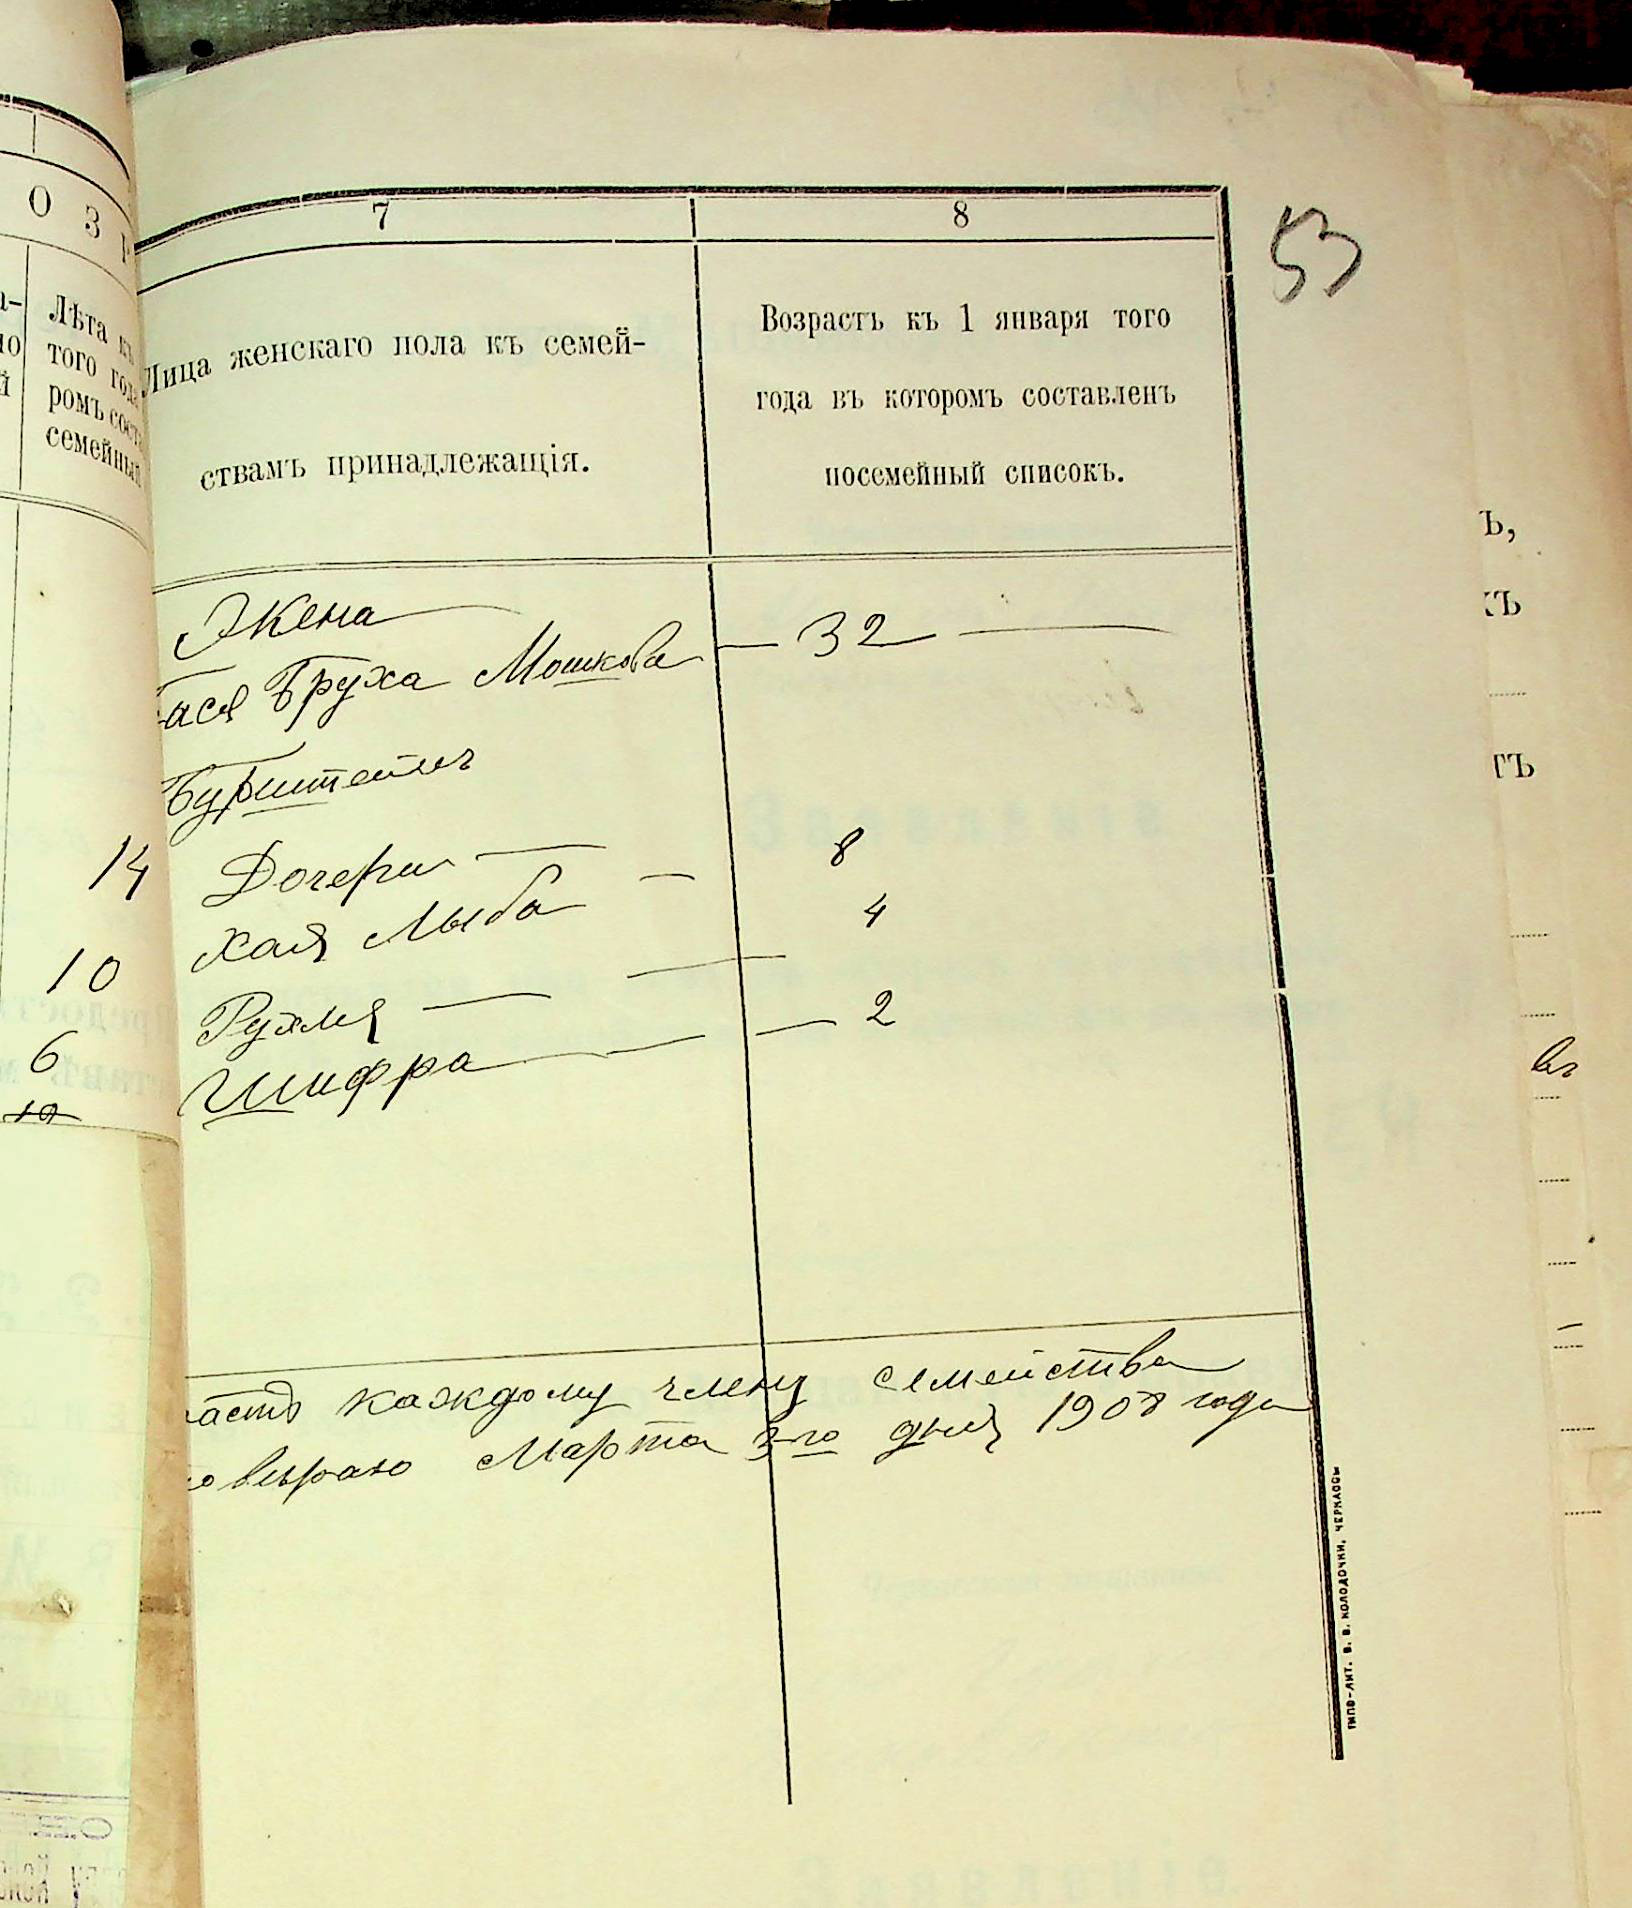 О З Р
Лѣта къ
того года
ромъ сост
семейный
14
10
6
10
7
8
53
Лица женскаго пола къ семей-
ствамъ принадлежащія.
Возрастъ къ 1 января того
года въ которомъ составленъ
посемейный списокъ.
Жена
ася Бруха Мошкова — 32 —
Бурштейнъ
Дочери — 8
Хая Лыба — 4
Рухля —
Шифра — 2
растъ каждому члену семейства
Марта 3-го дня 1908 года
ТИПО-ЛИТ. В. В. КОЛОДОЧКИ, ЧЕРКАССЫ
Ъ,
ТЪ
въ